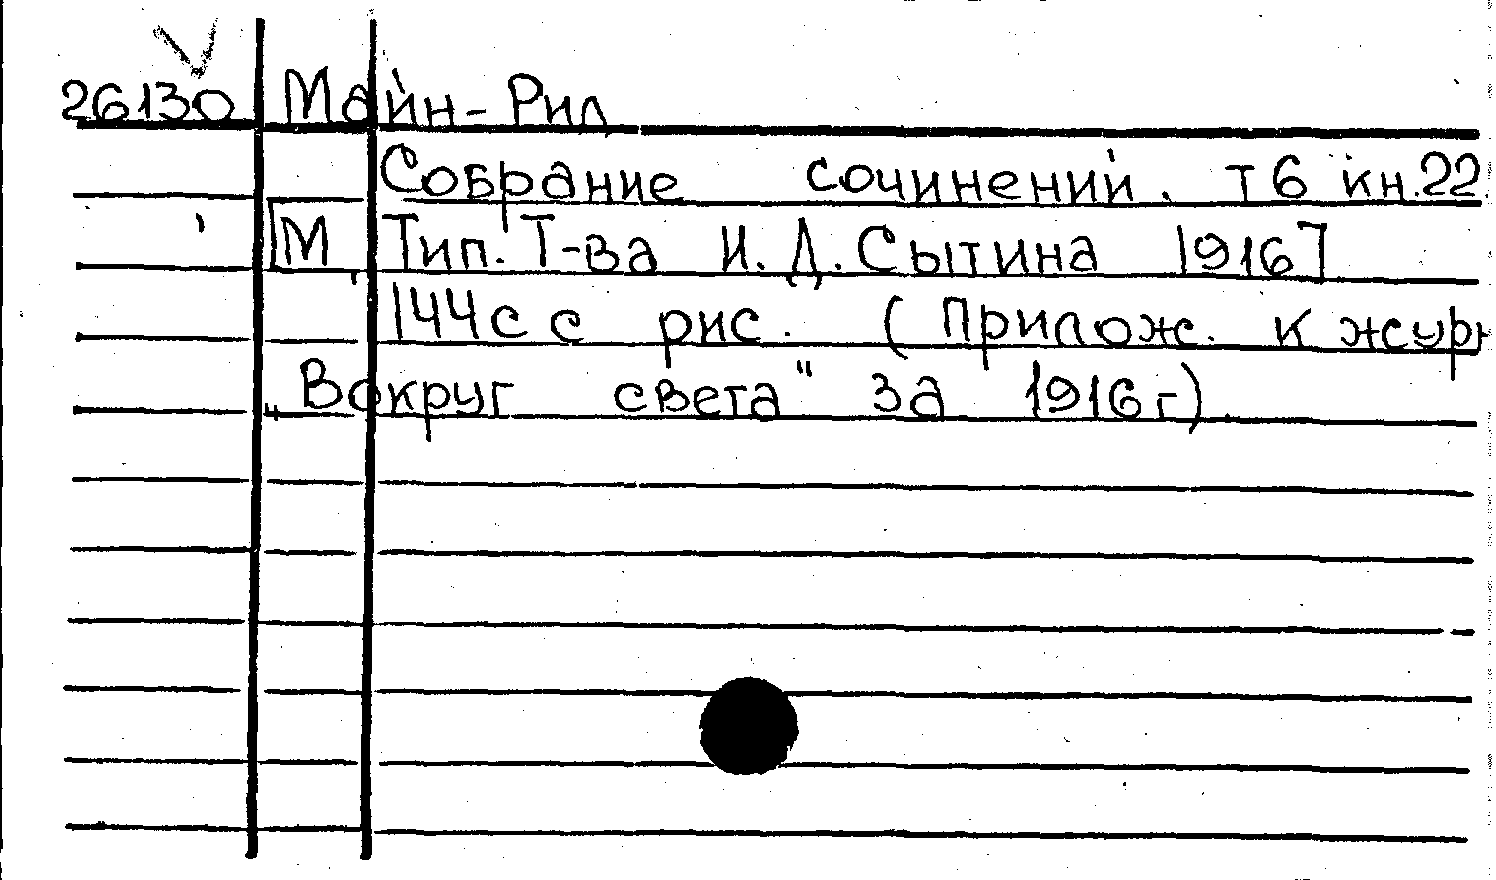 26130 Майн-Рид
Собрание сочинений. т 6 кн.22
[М, Тип. Т-ва И. Д. Сытина 1916]
144с с рис. (Прилож. к журн
„Вокруг света" за 1916г).